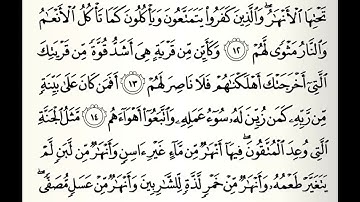 تَحْتِهَا الْأَنْهَٰرُ ۖ وَالَّذِينَ كَفَرُوا يَتَمَتَّعُونَ وَيَأْكُلُونَ كَمَا تَأْكُلُ الْأَنْعَٰمُ
وَالنَّارُ مَثْوًى لَّهُمْ ﴿١٢﴾ وَكَأَيِّن مِّن قَرْيَةٍ هِيَ أَشَدُّ قُوَّةً مِّن قَرْيَتِكَ
الَّتِي أَخْرَجَتْكَ أَهْلَكْنَٰهُمْ فَلَا نَاصِرَ لَهُمْ ﴿١٣﴾ أَفَمَن كَانَ عَلَىٰ بَيِّنَةٍ
مِّن رَّبِّهِ كَمَن زُيِّنَ لَهُ سُوءُ عَمَلِهِ وَاتَّبَعُوا أَهْوَاءَهُم ﴿١٤﴾ مَّثَلُ الْجَنَّةِ
الَّتِي وُعِدَ الْمُتَّقُونَ ۖ فِيهَا أَنْهَٰرٌ مِّن مَّاءٍ غَيْرِ ءَاسِنٍ وَأَنْهَٰرٌ مِّن لَّبَنٍ لَّمْ
يَتَغَيَّرْ طَعْمُهُ وَأَنْهَٰرٌ مِّنْ خَمْرٍ لَّذَّةٍ لِّلشَّٰرِبِينَ وَأَنْهَٰرٌ مِّنْ عَسَلٍ مُّصَفًّى ۖ